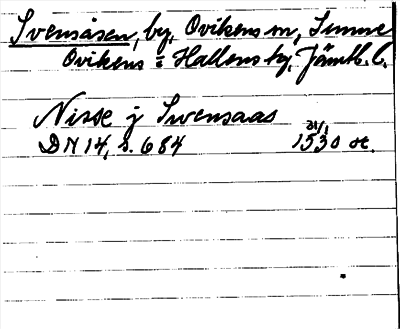 Svensåsen, by, Ovikens sn, Sunne
Ovikens o Hallens tg, Jämtl. l.
Nisse j Swensaas
DN 14, s. 684 31/1 1530 or.